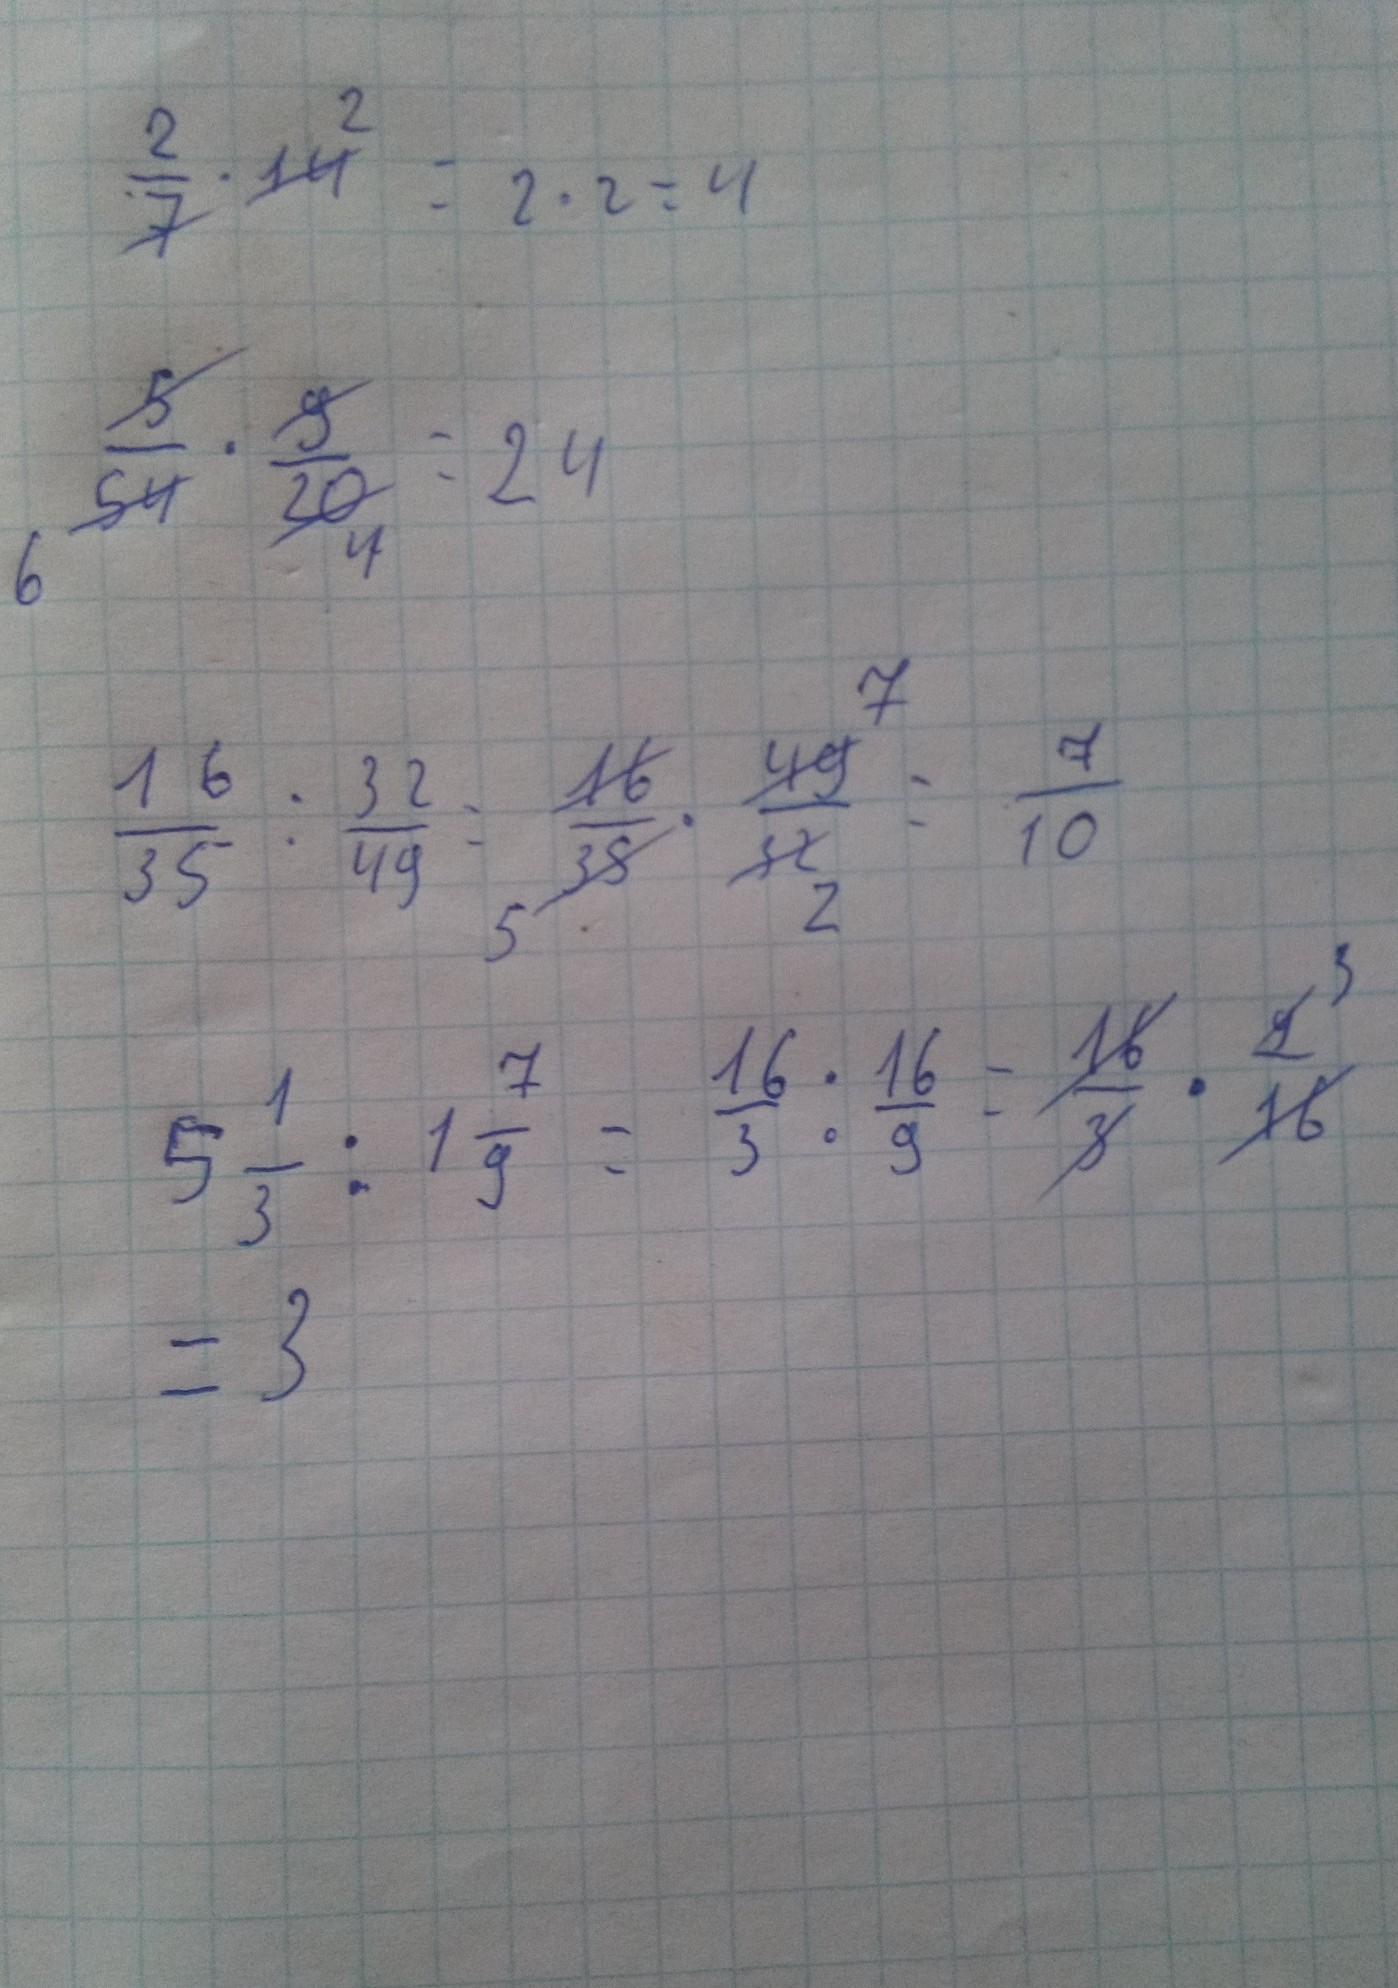 2/7 · 14 2 = 2 · 2 = 4
5/54 · 9/20 = 24
6 4
7
16/35 : 32/49 = 16/35 · 49/32 = 7/10
5 2
3
5 1/3 : 1 7/9 = 16/3 : 16/9 = 16/3 · 9/16
= 3